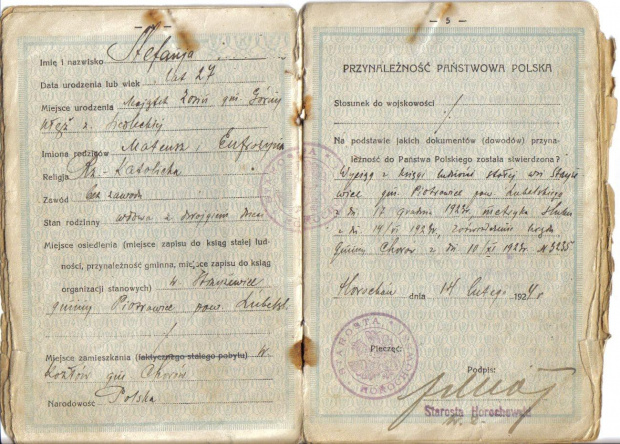 — 4 —
Imię i nazwisko Stefanja
Data urodzenia lub wiek lat 27
Miejsce urodzenia Majątek Zosin gm. Górny
z.
Imiona rodziców Mateusz i Eufrozyna
Religja Rz.-Katolicka
Zawód bez zawodu
Stan rodzinny wdowa z dwojgiem dzieci
Miejsce osiedlenia (miejsce zapisu do ksiąg stałej lud-
ności, przynależność gminna, miejsce zapisu do ksiąg
organizacji stanowych) w Strzyżewice
gminy Piotrowice pow. Lubelsk.
Miejsce zamieszkania (faktycznego stałego pobytu) w
gm. Chorów
Narodowość Polska
— 5 —
PRZYNALEŻNOŚĆ PAŃSTWOWA POLSKA
Stosunek do wojskowości
Na podstawie jakich dokumentów (dowodów) przyna-
leżność do Państwa Polskiego została stwierdzona?
Wyciąg z księgi ludności stałej wsi
gm. Piotrowice pow. Lubelskiego
z dn. 17 grudnia 1923r, metryka ślubu
z dn. 14/VI 1923r, zaświadczenie urzędu
gminy Chorów z dn. 10/XI 1923r. № 3235
Horochów dnia 14 lutego 1924r
Pieczęć:
STAROSTA HOROCHOWSKI
Podpis:
Starosta Horochowski